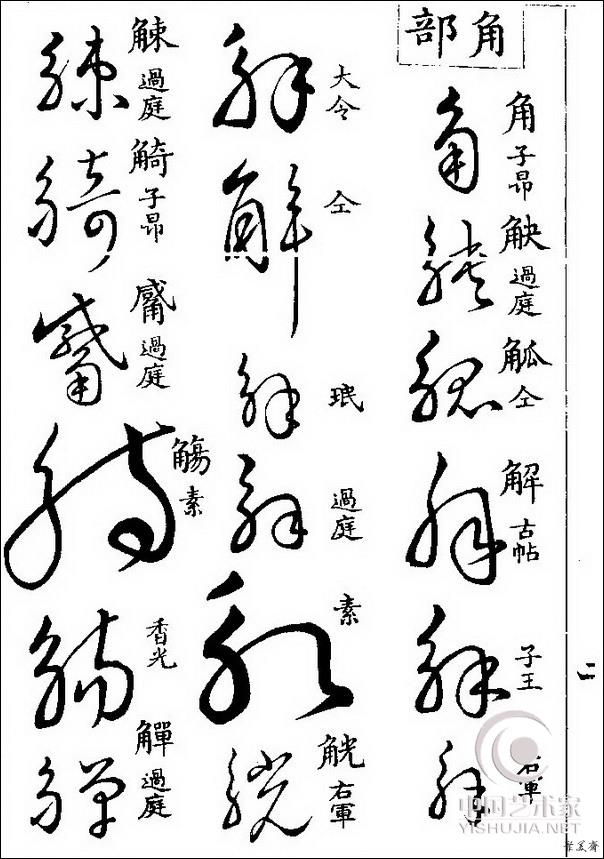 角部
角 子昂
觖 過庭
觚 仝
解 古帖
子王
右軍
大令
仝
珉
過庭
素
觥 右軍
觫 過庭
觭 子昂
觱 過庭
觴 素
香光
觶 過庭
二
中国艺术家
YISHUJIA.NET